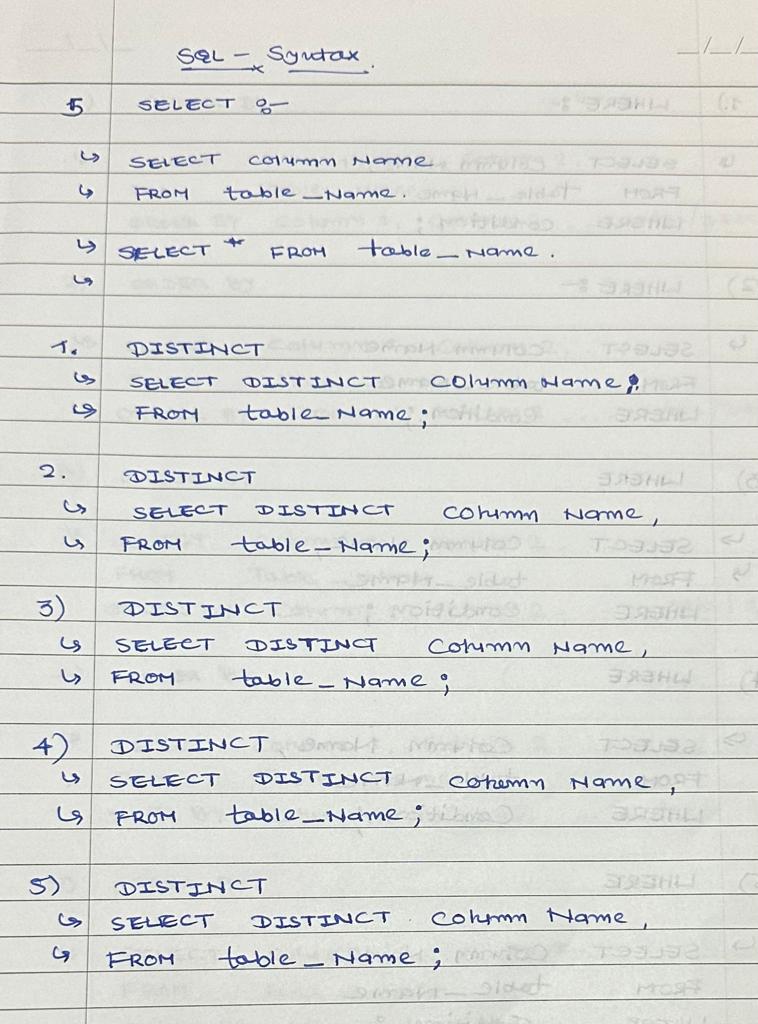 SQL - Syntax.
_/_/_
5 SELECT :-
↳ SELECT column Name
↳ FROM table_Name.
↳ SELECT * FROM table_Name.
↳
1. DISTINCT
↳ SELECT DISTINCT Column Name;
↳ FROM table_Name;
2. DISTINCT
↳ SELECT DISTINCT Column Name,
↳ FROM table_Name;
3) DISTINCT
↳ SELECT DISTINCT Column Name,
↳ FROM table_Name;
4) DISTINCT
↳ SELECT DISTINCT Column Name,
↳ FROM table_Name;
5) DISTINCT
↳ SELECT DISTINCT Column Name,
↳ FROM table_Name;